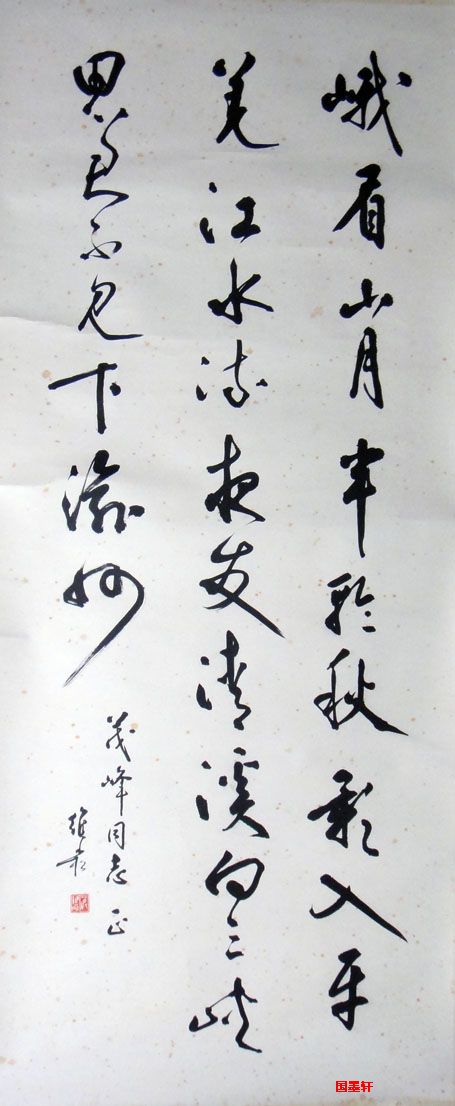 峨眉山月半轮秋影入平
羌江水流夜发清溪向三峡
思君不见下渝州
茂峰同志正
维崧
国墨轩